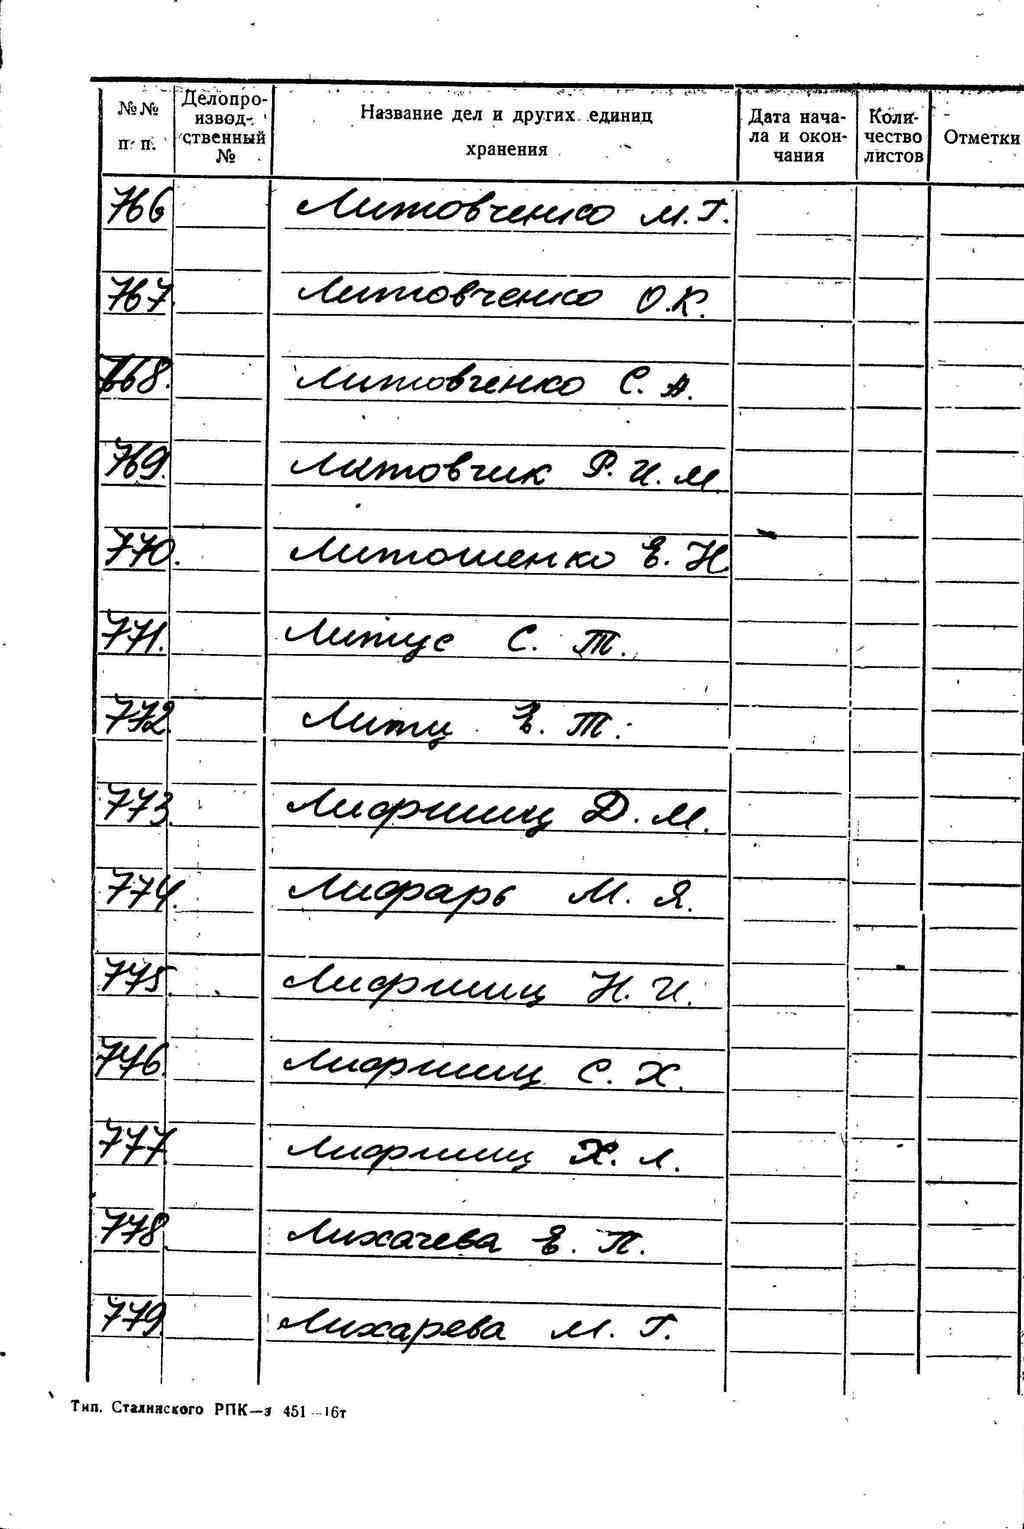 №№ п. п. Делопро-извод-ственный № Название дел и других единиц хранения Дата нача-ла и окон-чания Коли-чество листов Отметки
766 Литовченко М.Г.
767. Литовченко О.К.
768. Литовченко С. А.
769. Литовчик Р. И. М.
770. Литошенко Е. Н.
771. Литус С. Т.
772. Литц Е. Т.
773. Лифшиц Д. М.
774. Лифарь М. Я.
775. Лифшиц Н. И.
776. Лифшиц С. Х.
777. Лифшиц Х. Л.
778. Лихачева Е. П.
779. Лихарева М. Г.
Тип. Сталинского РПК—з 451—16т